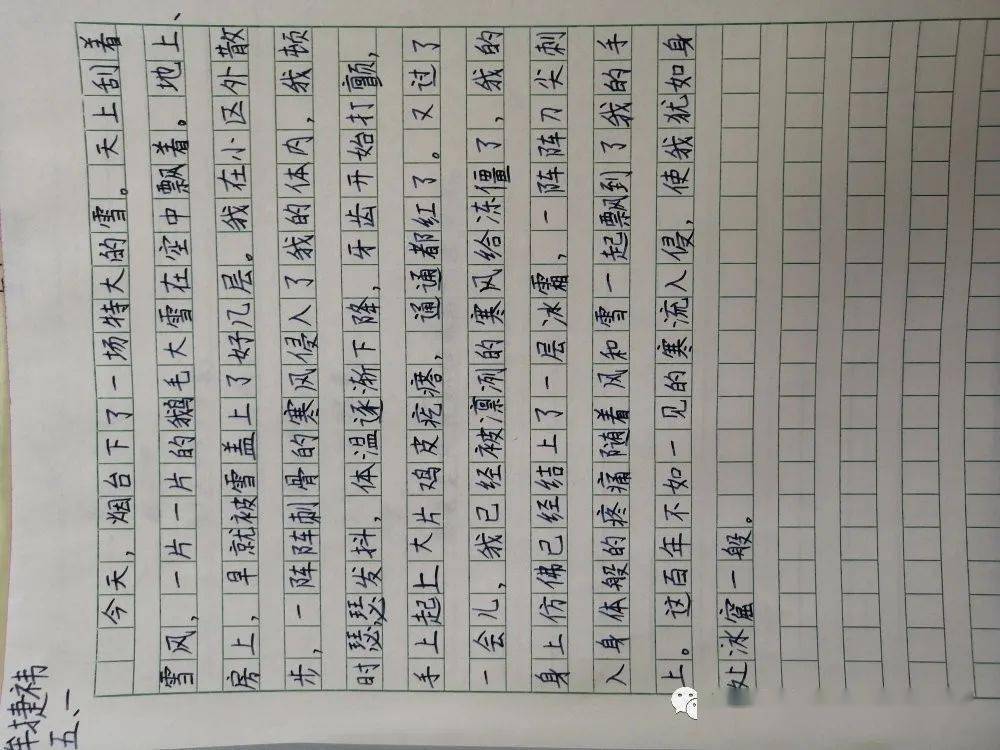 牟捷祎
五、一
今天，烟台下了一场特大的雪。天上刮着
雪风，一片一片的鹅毛大雪在空中飘着。地上、
房上，早就被雪盖上了好几层。我在小区外散
步，一阵阵刺骨的寒风侵入了我的体内，我顿
时瑟瑟发抖，体温逐渐下降，牙齿开始打颤，
手上起上大片鸡皮疙瘩，通通都红了。又过了
一会儿，我已经被凛冽的寒风给冻僵了，我的
身上仿佛已经结上了一层冰霜，一阵阵刀尖刺
入身体般的疼痛随着风和雪一起飘到了我的手
上。这百年不如一见的寒流入侵，使我犹如身
处冰窟一般。